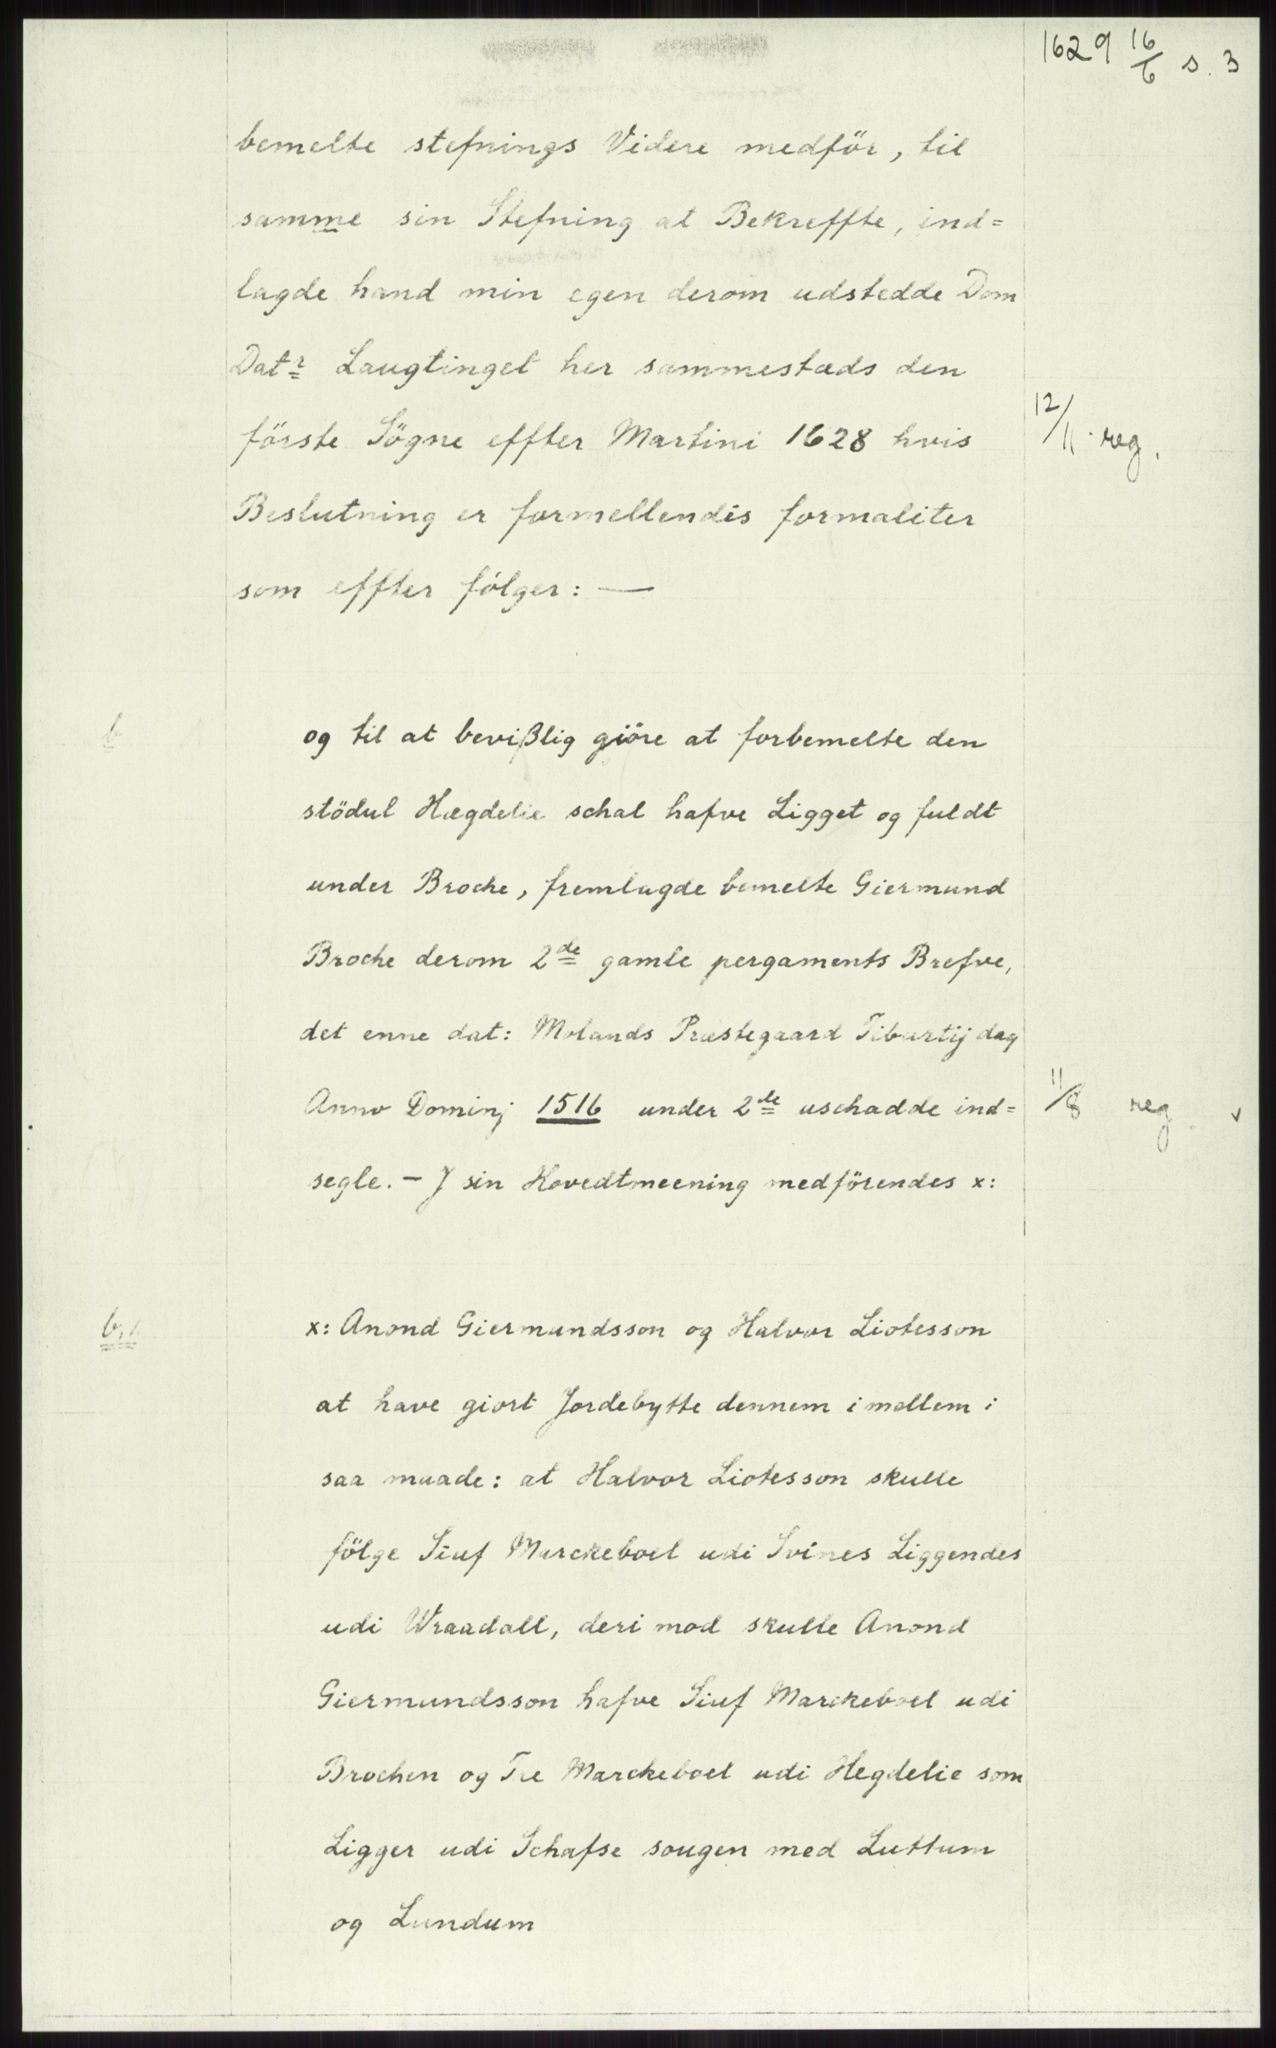 1629 16/6 s. 3
bemelte stefnings Videre medför, til
samme sin Stefning at Bekreffte, ind=
lagde hand min egen derom udstedde Dom
Datr Laugtinget her sammestæds den
förste Sögne effter Martini 1628 hvis
12/11 reg.
Beslutning er formellendis formaliter
som effter fölger: —
b
og til at bevißlig giöre at forbemelte den
stödul Hægdelie schal hafve Ligget og fuldt
under Broche, fremlagde bemelte Giermund
Broche derom 2de gamle pergaments Brefve,
det enne dat: Molands Præstegaard Tiburtij dag
Anno Dominj 1516 under 2de uschadde ind=
11/8 reg v
segle. — J sin Hovedtmeening medförendes x:
b.1.
x: Anond Giermundsson og Halvor Liotesson
at have giort Jordebytte dennem imellem i
saa maade: at Halvor Liotesson skulle
fölge Siuf Marckeboel udi Svines Liggendes
udi Wraadall, deri mod skulle Anond
Giermundsson hafve Siuf Marckeboel udi
Brochen og Tre Marckeboel udi Hegdelie som
Ligger udi Schafse sougen med Luttum
og Lundum